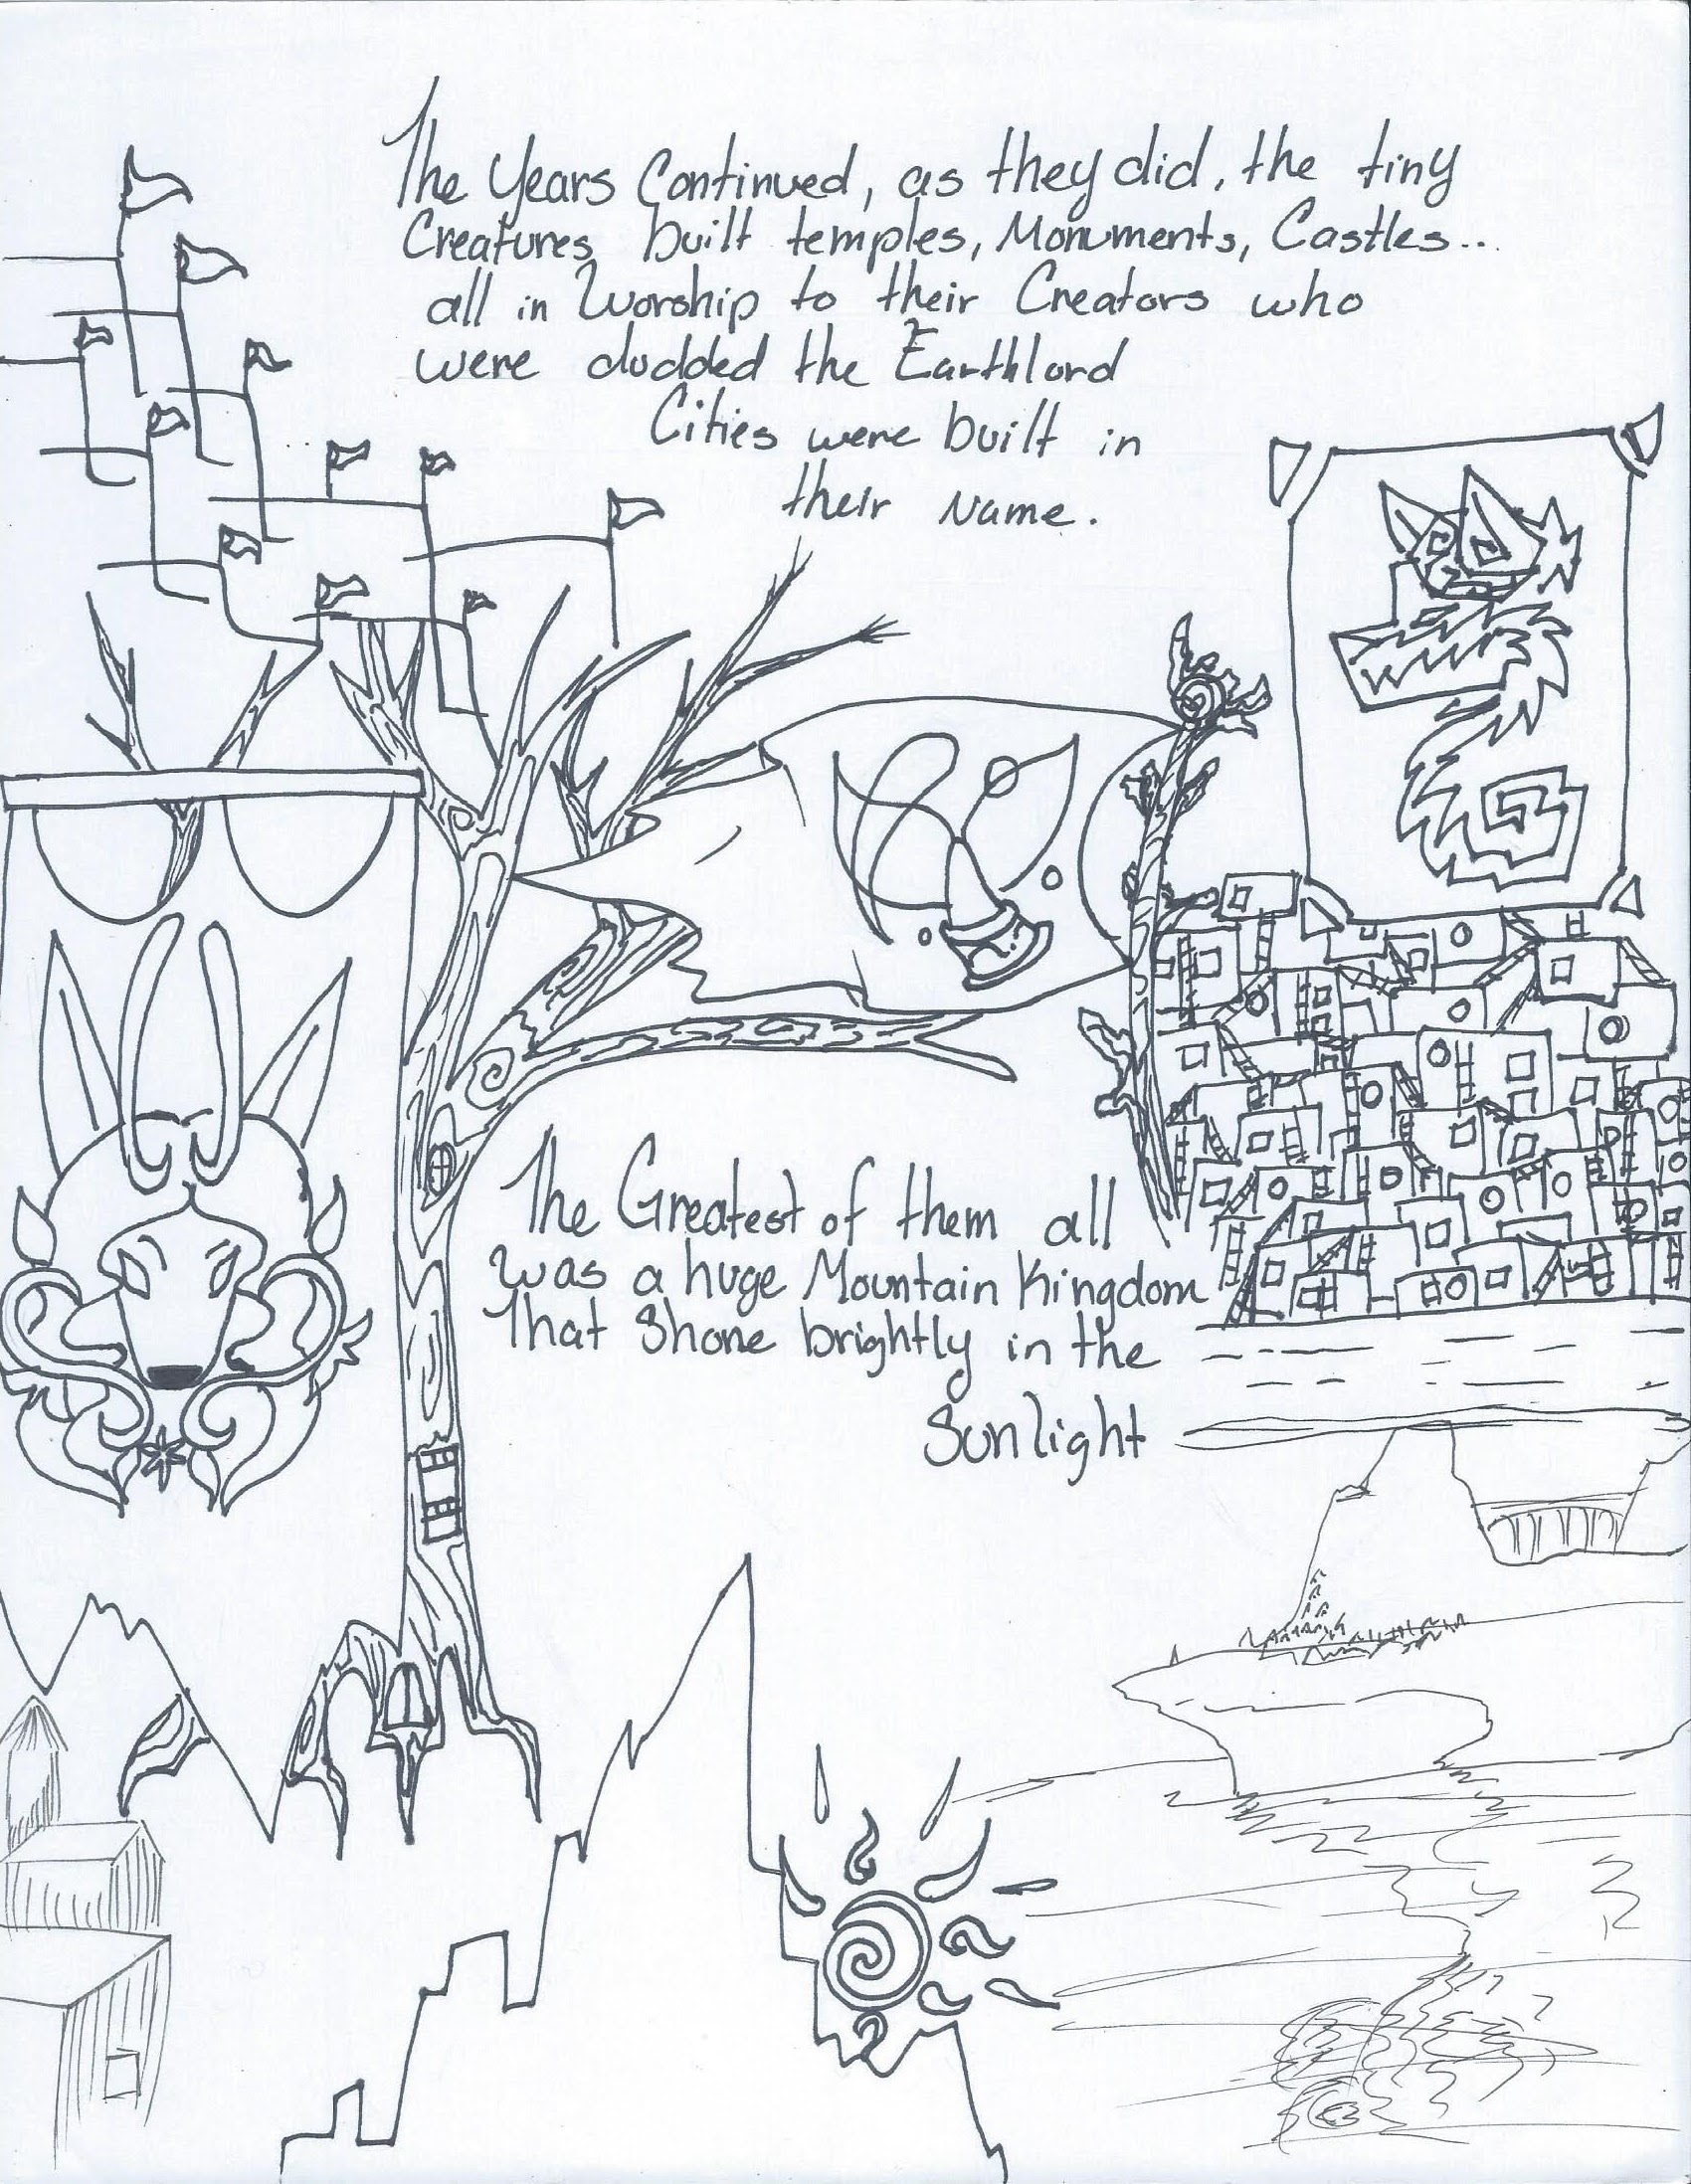 The Years Continued, as they did, the tiny
Creatures built temples, Monuments, Castles...
all in Worship to their Creators who
were dudded the Earthlord
Cities were built in
their Name.
The Greatest of them all
was a huge Mountain Kingdom
That Shone brightly in the
Sunlight